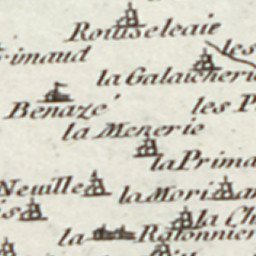 Rousseleaie
les
rimaud
la Galaicheri
Benazé
les P
la Menerie
la Prima
Neuille
la Mori
an
is
la Ch
la
Ratonnier